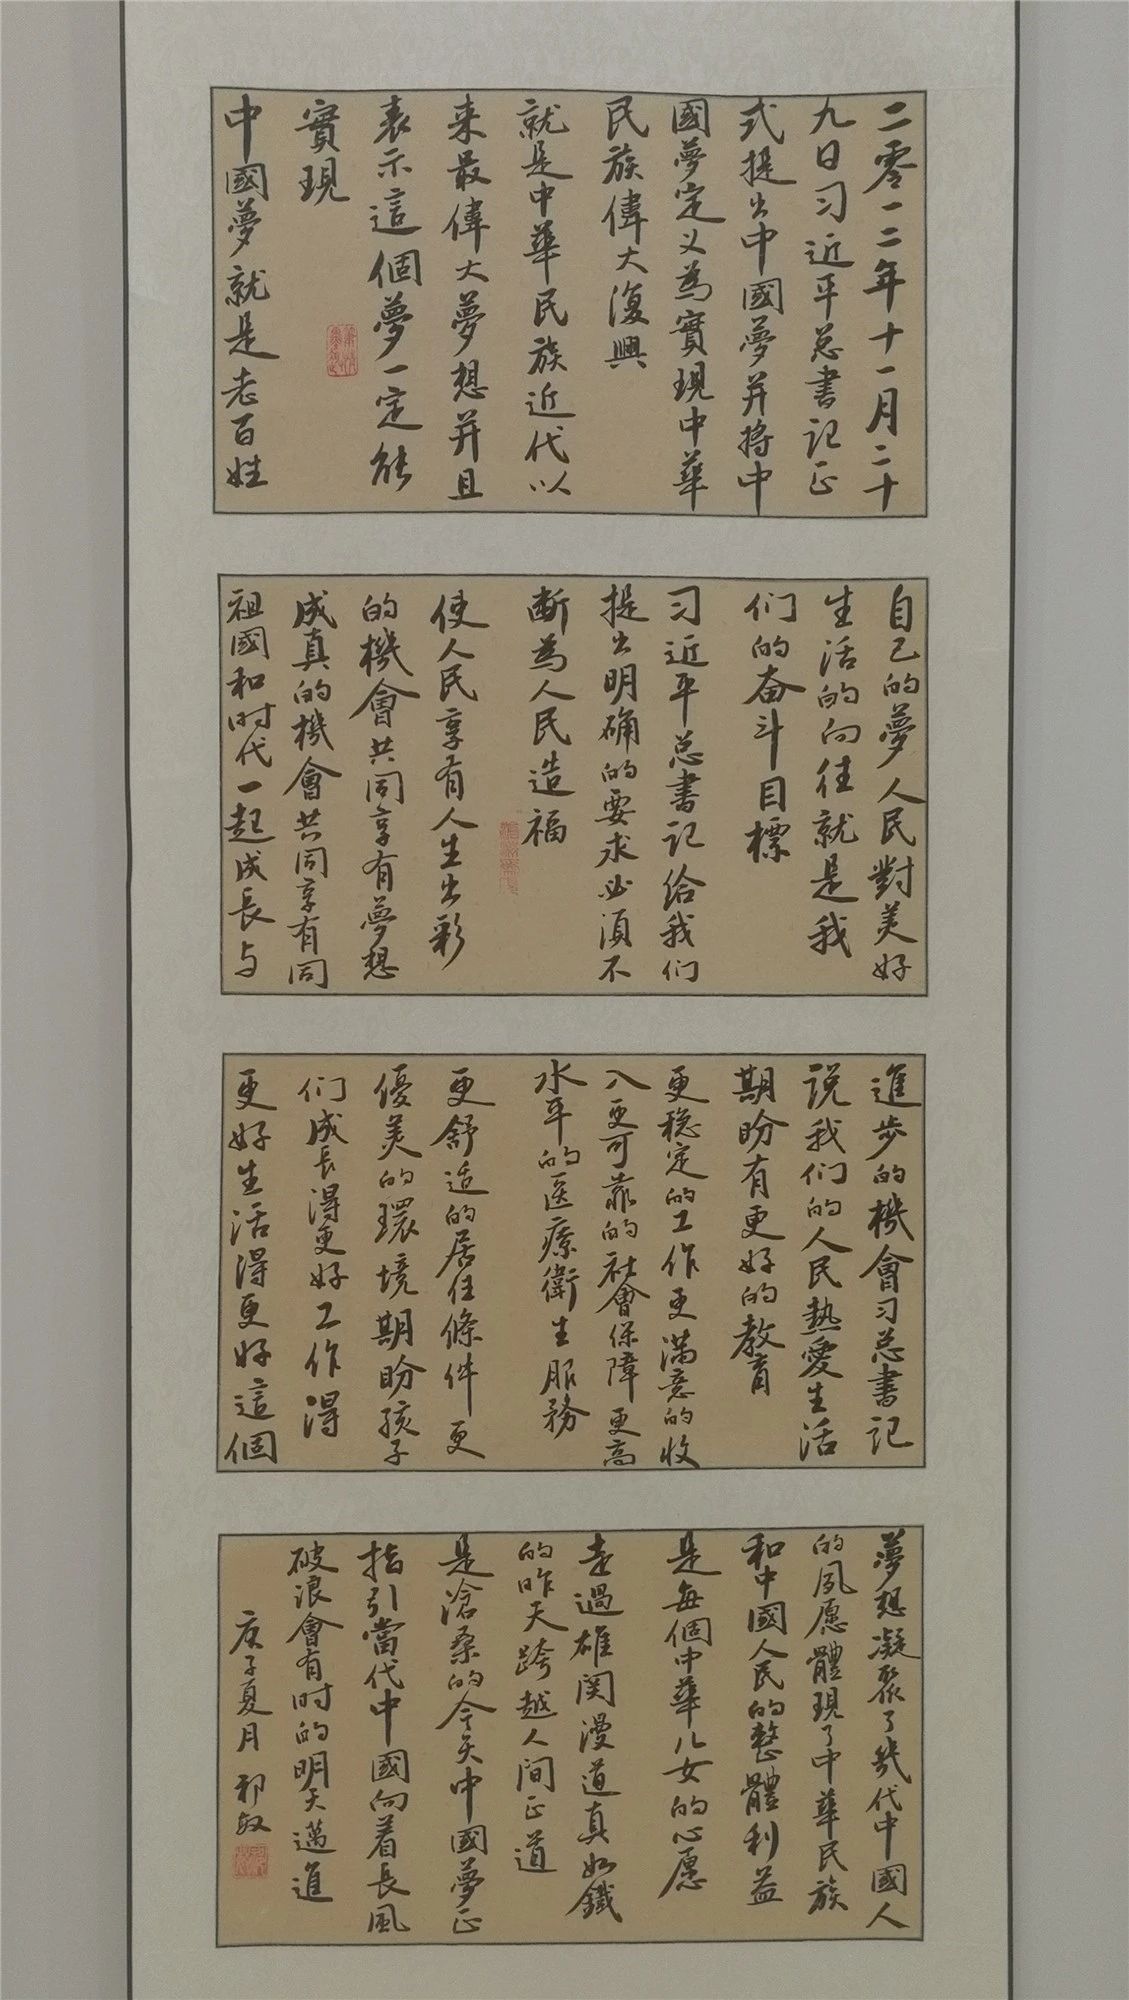 二零一二年十一月二十
九日习近平总書记正
式提出中國夢并將中
國夢定义為實現中華
民族偉大復興
就是中華民族近代以
来最偉大夢想并且
表示這個夢一定能
實現
中國夢就是老百姓
自己的夢人民對美好
生活的向往就是我
们的奋斗目標
习近平总書记给我们
提出明确的要求必须不
断為人民造福
使人民享有人生出彩
的機會共同享有夢想
成真的機會共同享有同
祖國和时代一起成長与
進步的機會习总書记
说我们的人民热愛生活
期盼有更好的教育
更稳定的工作更满意的收
入更可靠的社會保障更高
水平的医療衛生服務
更舒适的居住條件更
優美的環境期盼孩子
们成長得更好工作得
更好生活得更好這個
夢想凝聚了幾代中國人
的夙愿體現了中華民族
和中國人民的整體利益
是每個中華儿女的心愿
走過雄関漫道真如鐵
的昨天跨越人间正道
是滄桑的今天中國夢正
指引當代中國向着長風
破浪會有时的明天邁進
庚子夏月 祁敏